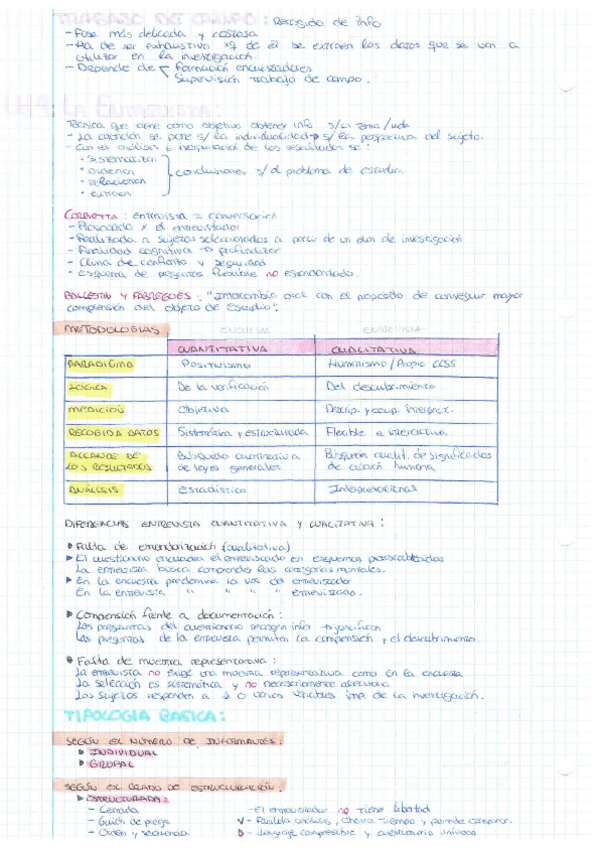 TRABAJO DE CAMPO: Recogida de info
- Fase más delicada y costosa
- Ha de ser exhaustivo xq de él se extraen los datos que se van a
utilizar en la investigación.
- Depende de Formación encuestadores
Supervisión trabajo de campo.
Ud 9: La Entrevista
Técnica que tiene como objetivo obtener info s/ un tema/vida
- La atención se pone s/ la individualidad → s/ la perspectiva del sujeto.
- Con el análisis e interpretación de los resultados se:
• sistematizan
• ordenan
• relacionan
• extraen
conclusiones s/ el problema de estudio
CORBETTA: entrevista = conversación
- Provocada x el entrevistador
- Realizada a sujetos seleccionados a partir de un plan de investigación
- Finalidad cognitiva → profundizar
- Clima de confianza y seguridad
- Esquema de preguntas flexible no estandarizado.
BALLESTIN Y FÀBREGUES: "Intercambio oral con el propósito de conseguir mayor
comprensión del objeto de Estudio".
METODOLOGÍAS ENCUESTA ENTREVISTA
CUANTITATIVA CUALITATIVA
PARADIGMA Positivismo Humanismo / Propio CCSS
LÓGICA De la verificación Del descubrimiento
MEDICIÓN Objetiva Descrip. y comp. interpret.
RECOGIDA DATOS Sistemática y estructurada Flexible e interactiva
ALCANCE DE Búsqueda cuantitativa Búsqueda cualit. de significados
LOS RESULTADOS de leyes generales de acción humana
ANÁLISIS Estadístico Interpretacional
DIFERENCIAS ENTREVISTA CUANTITATIVA Y CUALITATIVA:
▶ Falta de estandarización (cualitativa)
▶ El cuestionario encuadra al entrevistado en esquemas preestablecidos
La entrevista busca comprender las categorías mentales.
▶ En la encuesta predomina la voz del entrevistador
En la entrevista " " " " entrevistado.
▶ Compensión frente a documentación:
Las preguntas del cuestionario recogen info → justifican
Las preguntas de la entrevista permiten la compensión y el descubrimiento.
▶ Falta de muestra representativa:
La entrevista no exige una muestra representativa como en la encuesta
La selección es sistemática y no necesariamente aleatoria
Los sujetos responden a 1 o varias variables imp de la investigación.
TIPOLOGIA BASICA:
SEGÚN EL NÚMERO DE INFORMANTES:
▶ INDIVIDUAL
▶ GRUPAL
SEGÚN EL GRADO DE ESTRUCTURACIÓN:
▶ ESTRUCTURADA:
- Cerrada - El entrevistador no tiene libertad
- Guión de pregs V - Facilita análisis, ahorra tiempo y permite comparar.
- Orden y secuencia D - Lenguaje comprensible y cuestionario unívoco